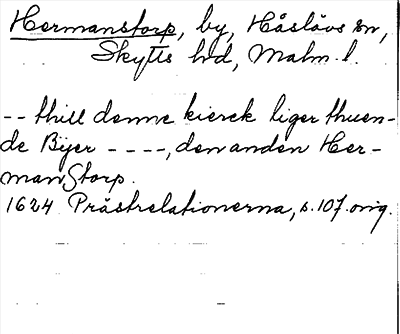 Hermanstorp, by, Håslövs sn,
Skytts hd, Malm. l.
-- thill denne kierck liger thuen-
de Bÿer - - - -, den anden Her-
manStorp.
1624 Prästrelationerna, s. 107. orig.